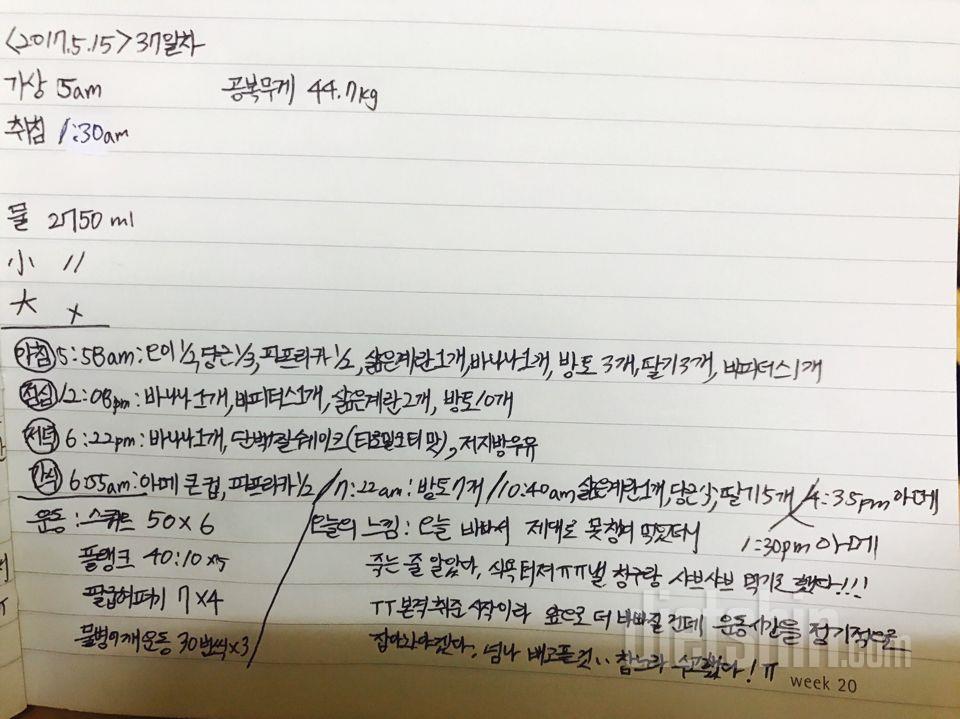 <2017.5.15> 37일차
기상 5am 공복무게 44.7kg
취침 1:30am
물 2750 ml
小 //
大 x
아침 5:58am: 오이½, 당근⅓, 파프리카½, 삶은계란1개, 바나나1개, 방토 3개, 딸기3개, 바피더스1개
점심 12:08pm: 바나나1개, 바피더스1개, 삶은계란2개, 방토10개
저녁 6:22pm: 바나나1개, 단백질쉐이크(티오밀크티맛), 저지방우유
간식 6:05am: 아메 큰컵, 파프리카½ / 7:22am: 방토7개 / 10:40am 삶은계란1개, 당근⅓, 딸기5개 / 4:35pm 아메
1:30pm 아메
운동: 스쿼트 50x6
플랭크 40:10 x5
팔굽혀펴기 7x4
물병 어깨운동 30번씩x3
오늘의 느낌: 오늘 바빠서 제대로 못챙겨 먹었더니
죽는 줄 알았다, 식욕터져ㅠㅠ낼 친구랑 샤브샤브 먹기로 했다!!!
ㅠㅠ본격 취준 시작이라 앞으로 더 바빠질 건데 운동시간을 정기적으로
잡아놔야겠다. 넘나 배고픈것.. 참느라 수고했다! ㅠ
week 20
dietshin.com